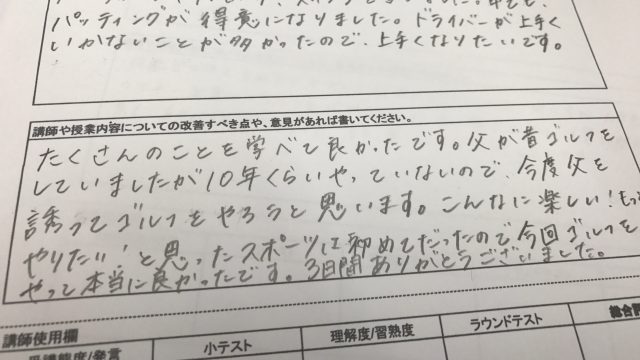 パッティングが得意になりました。ドライバーが上手く
いかないことが多かったので、上手くなりたいです。
講師や授業内容についての改善すべき点や、意見があれば書いてください。
たくさんのことを学べて良かったです。父が昔ゴルフを
していましたが10年くらいやっていないので、今度父を
誘ってゴルフをやろうと思います。こんなに楽しい!もっ
やりたい!と思ったスポーツは初めてだったので今回ゴルフを
やって本当に良かったです。3日間ありがとうございました。
講師使用欄
受講態度/発言 小テスト 理解度/習熟度 ラウンドテスト 総合